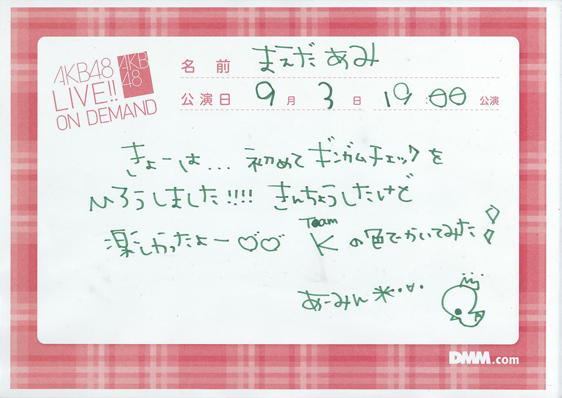 AKB48
LIVE!!
ON DEMAND
AKB
48
名前 まえだ あみ
公演日 9月 3日 19:00 公演
きょーは... 初めて ギンガムチェックを
ひろうしました!!!! きんちょうしたけど
楽しかったよー♡♡ Team K の色でかいてみた!
あーみん
DMM.com